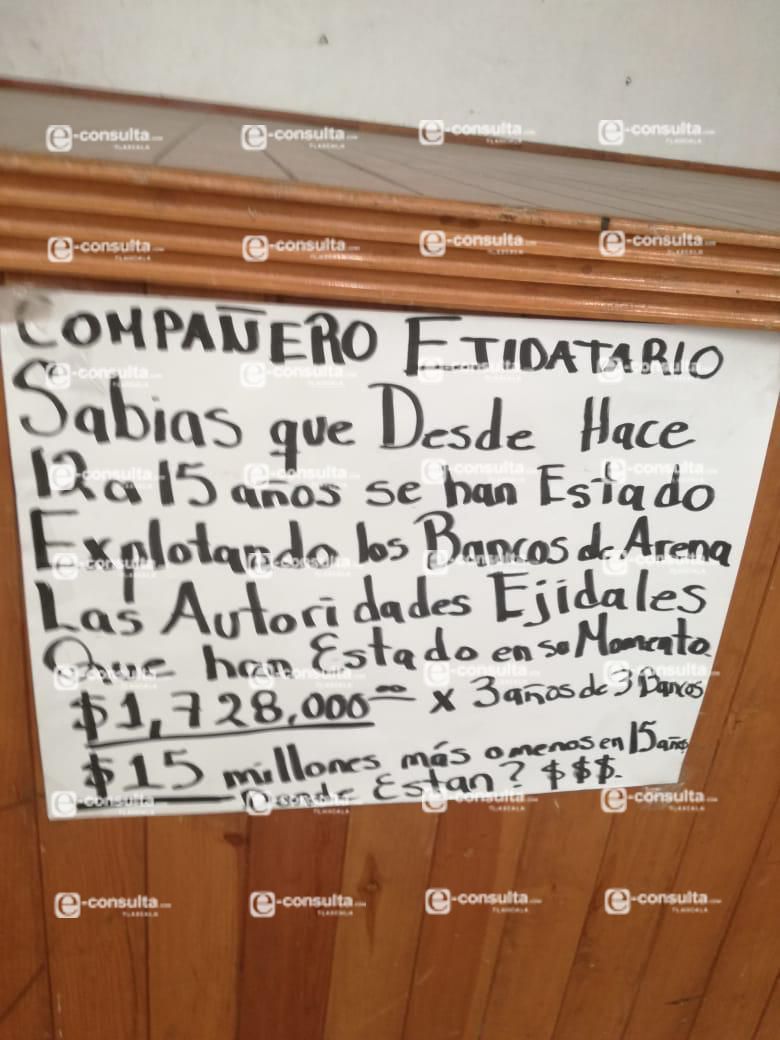 COMPAÑERO EJIDATARIO
Sabias que Desde Hace
12 a 15 años se han Estado
Explotando los Bancos de Arena
Las Autoridades Ejidales
Que han Estado en su Momento
$1,728,000 00 x 3 años de 3 Bancos
$15 millones más o menos en 15 años
Donde Estan? $$$.
e-consulta.com
TLAXCALA